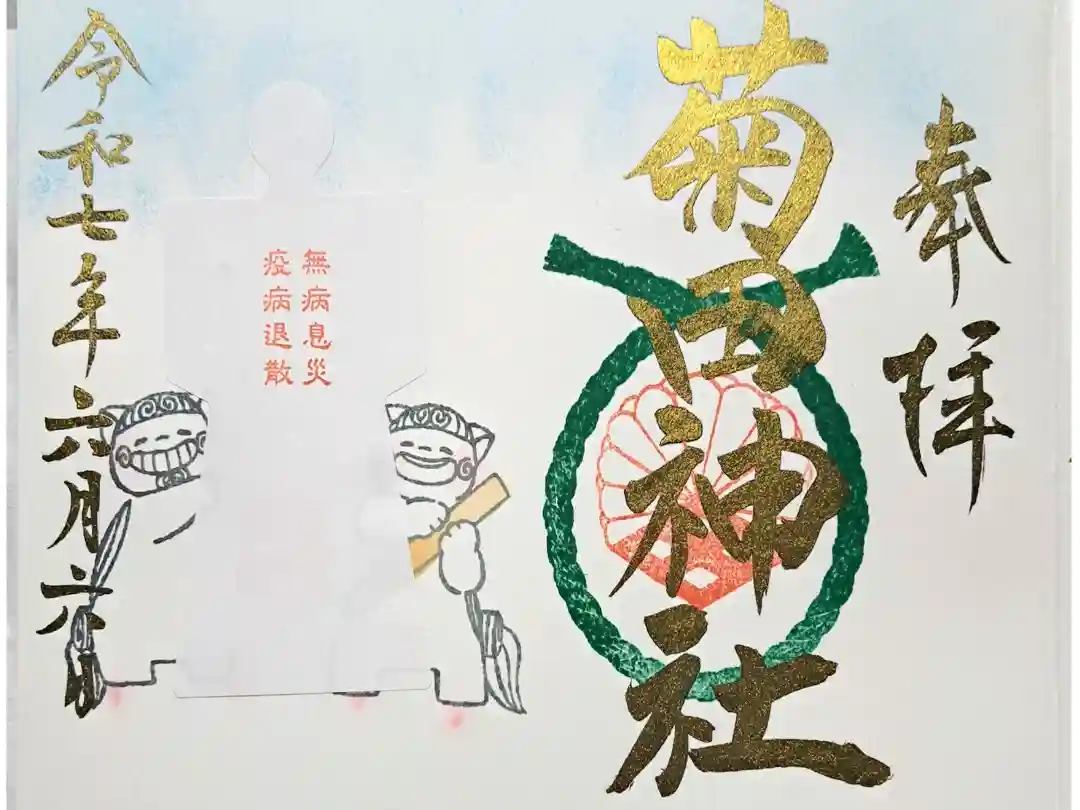 奉拝
菊田神社
無病息災
疫病退散
令和七年六月六日